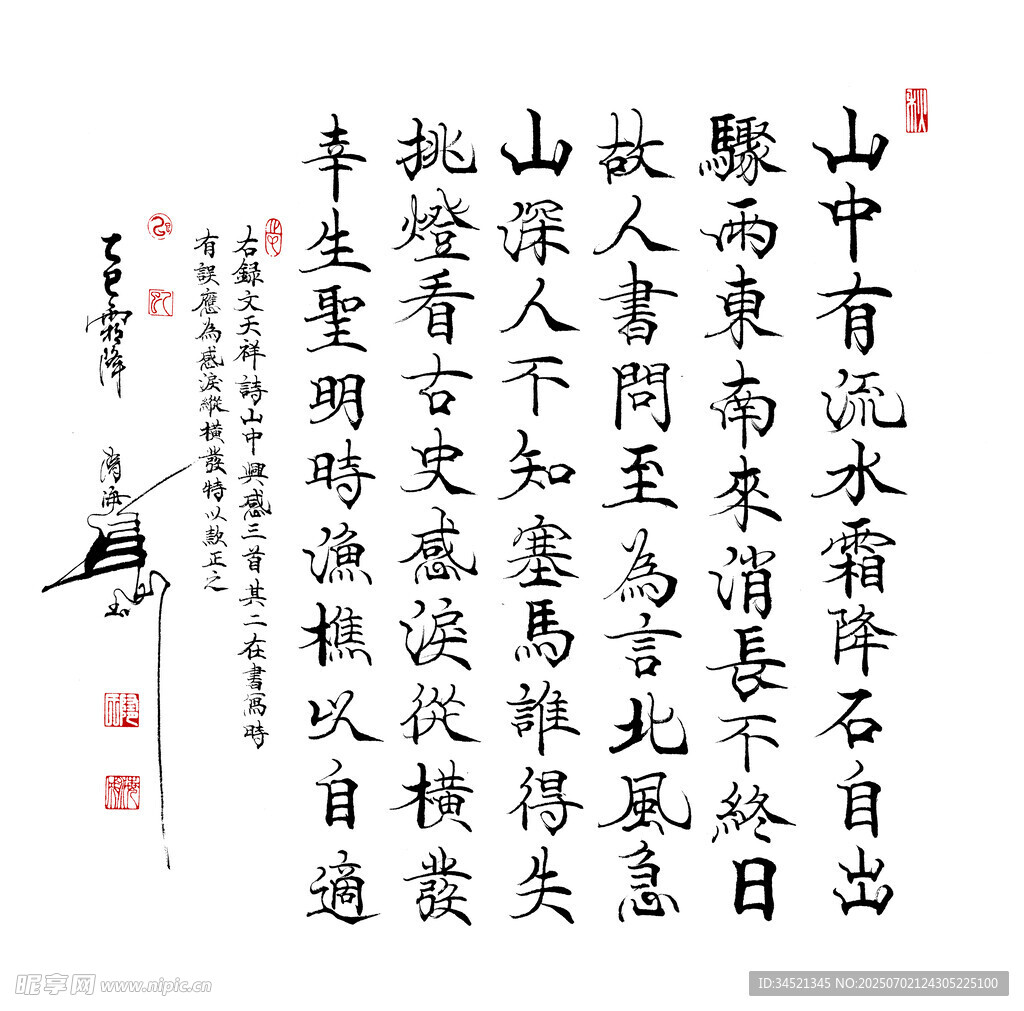 山中有流水霜降石自出
驟雨東南來消長不終日
故人書問至為言北風急
山深人不知塞馬誰得失
挑燈看古史感淚從橫發
幸生聖明時漁樵以自適
右録文天祥詩山中興感三首其二在書寫時
有誤應為感淚縱橫發特以款正之
乙巳霜降
昵享网 www.nipic.cn
ID:34521345 NO:20250702124305225100